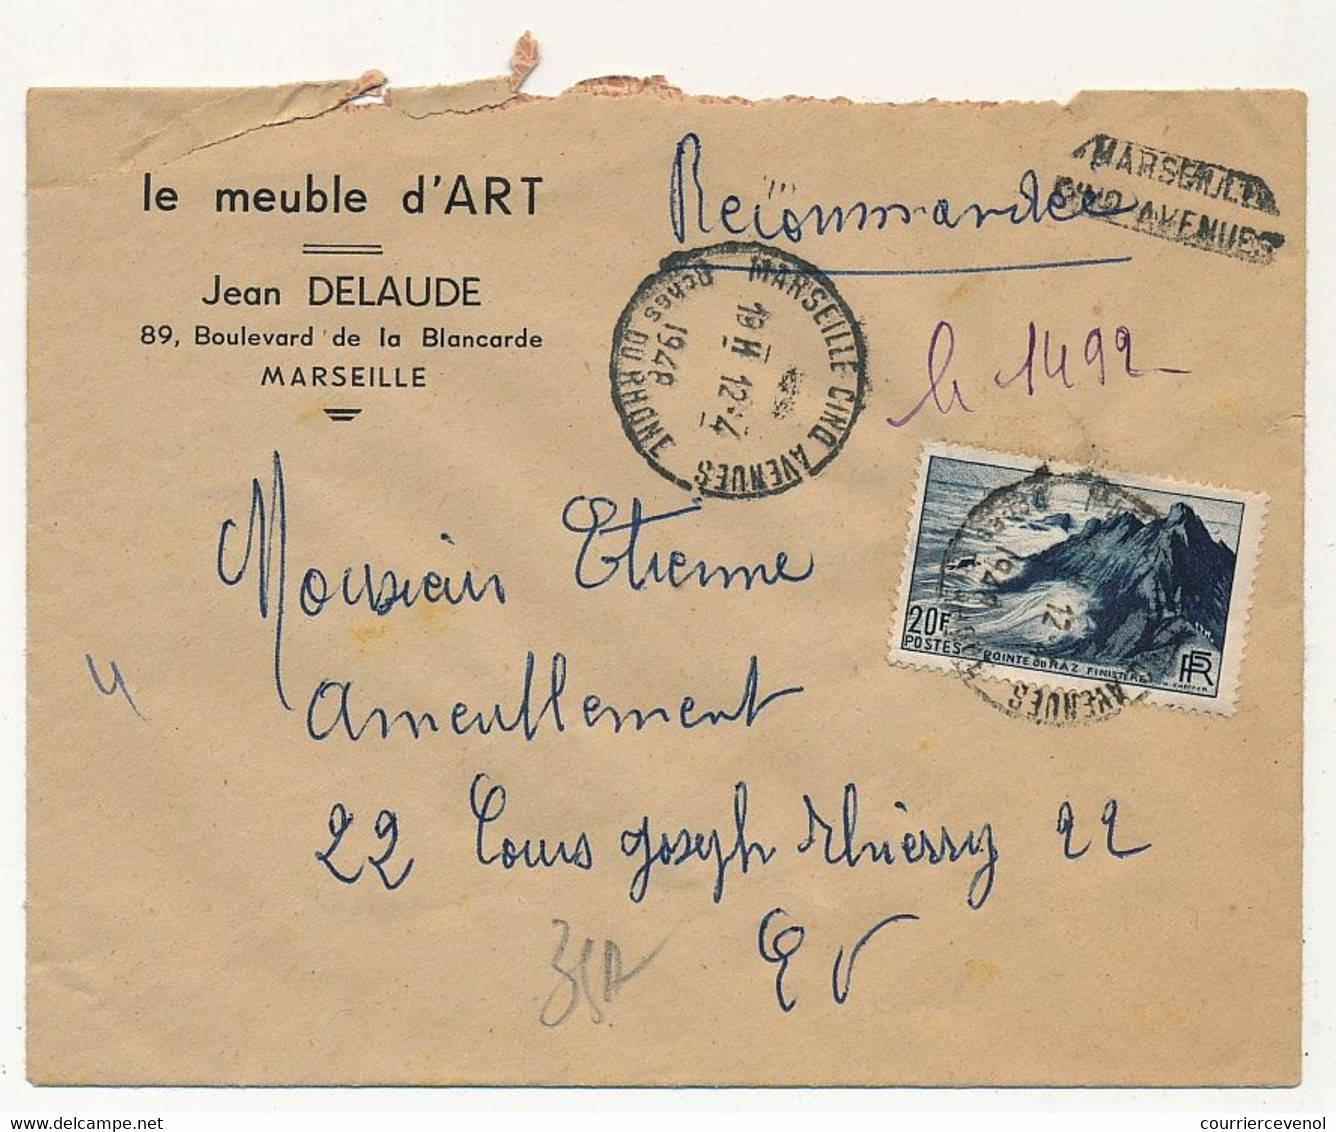 le meuble d'ART
Jean DELAUDE
89, Boulevard de la Blancarde
MARSEILLE
Recommandée
MARSEILLE
CINQ AVENUES
MARSEILLE CINQ AVENUES
Bches DU RHONE
19 H 12-4
1948
n 1492
20F
POSTES
POINTE DU RAZ FINISTERE
RF
AVENUES
Monsieur Etienne
Ameublement
22 Cours Joseph Thierry 22
E V
courriercevenol.com